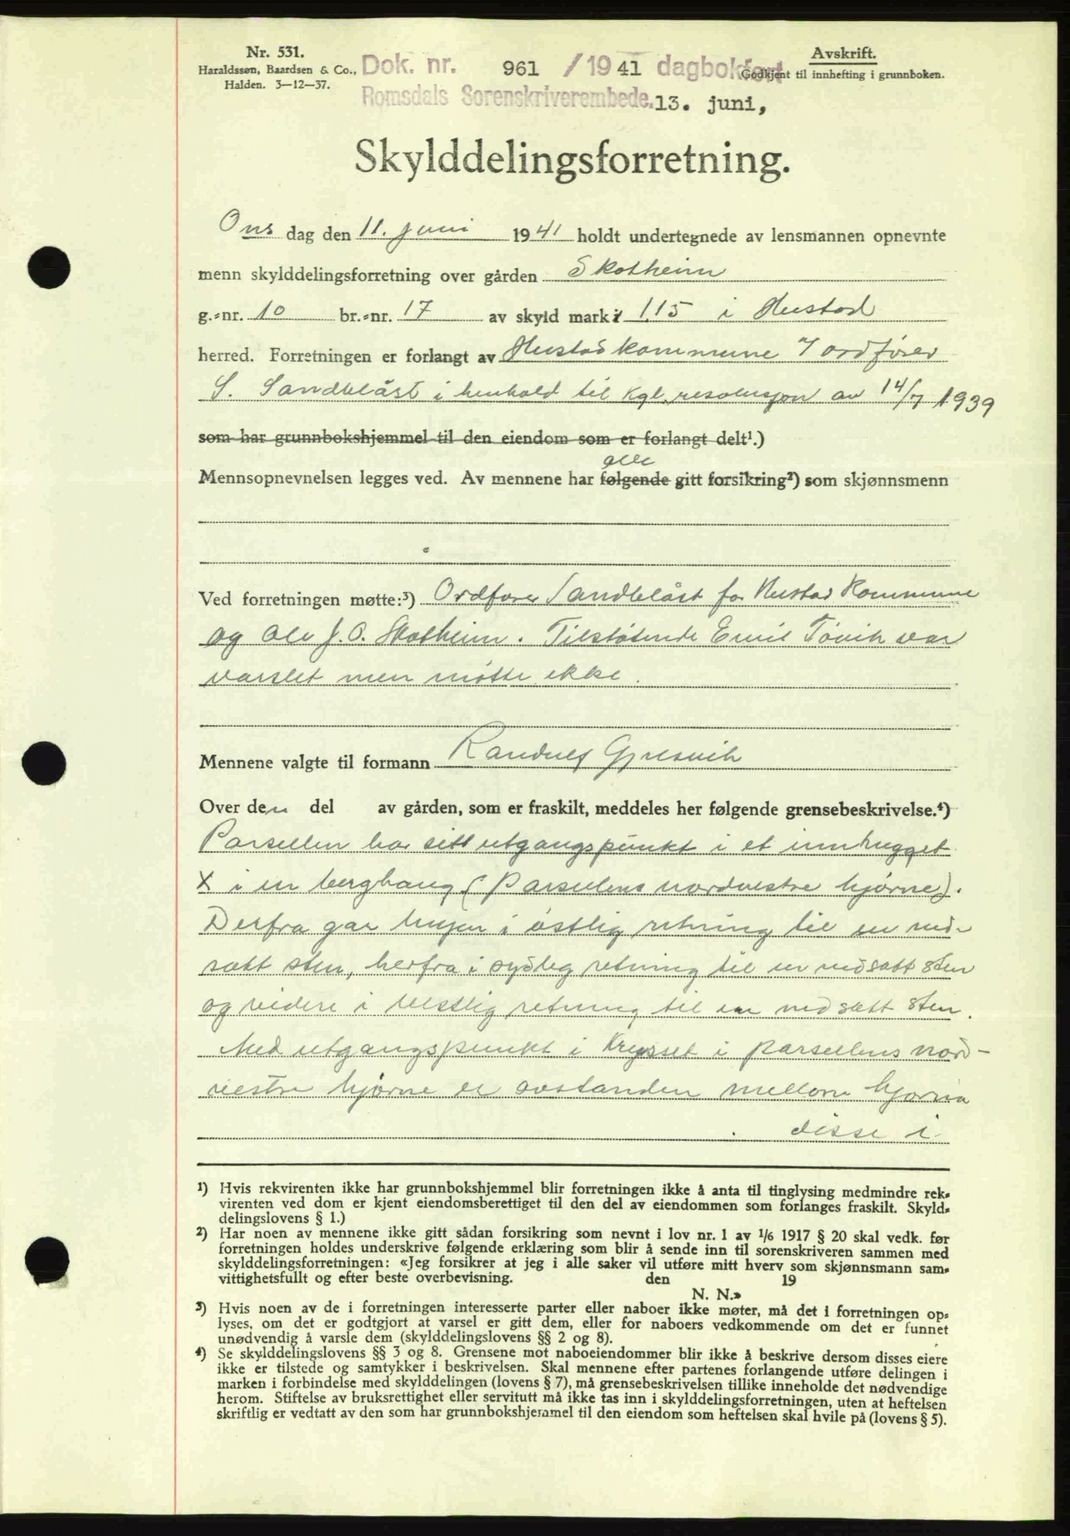 Nr. 531.
Haraldssøn, Baardsen & Co.,
Halden. 3—12—37.
Dok. nr. 961 / 19 41 dagbokført
Romsdals Sorenskriverembede. 13. juni,
Avskrift.
Godkjent til innhefting i grunnboken.
Skylddelingsforretning.
Ons dag den 11. juni 19 41 holdt undertegnede av lensmannen opnevnte
menn skylddelingsforretning over gården Skotheim
g.-nr. 10 br.-nr. 17 av skyld mark 1.15 i Hustad
herred. Forretningen er forlangt av Hustad kommune v/ ordfører
S. Sandblåst i henhold til Kgl. resolusjon av 14/7 1939
som har grunnbokshjemmel til den eiendom som er forlangt delt¹.)
alle
Mennsopnevnelsen legges ved. Av mennene har følgende gitt forsikring²) som skjønnsmenn
Ved forretningen møtte:³) Ordfører Sandblåst for Hustad Kommune
og Ole J. O. Skotheim. Tilstøtende Emil Tovik var
varslet men møtte ikke.
Mennene valgte til formann Randulf Gjesvik
Over den del av gården, som er fraskilt, meddeles her følgende grensebeskrivelse.⁴)
Parsellen har sitt utgangspunkt i et innhugget
X i en berghaug (parsellens nordvestre hjørne).
Derfra går linjen i østlig retning til en ned-
satt sten, herfra i sydlig retning til en nedsatt sten
og videre i vestlig retning til en nedsatt sten.
Med utgangspunkt i krysset i parsellens nord-
vestre hjørne er avstanden mellom hjørna
disse i
¹) Hvis rekvirenten ikke har grunnbokshjemmel blir forretningen ikke å anta til tinglysing medmindre rek-
virenten ved dom er kjent eiendomsberettiget til den del av eiendommen som forlanges fraskilt. Skyld-
delingslovens § 1.)
²) Har noen av mennene ikke gitt sådan forsikring som nevnt i lov nr. 1 av 1/6 1917 § 20 skal vedk. før
forretningen holdes underskrive følgende erklæring som blir å sende inn til sorenskriveren sammen med
skylddelingsforretningen: «Jeg forsikrer at jeg i alle saker vil utføre mitt hverv som skjønnsmann sam-
vittighetsfullt og efter beste overbevisning. den 19
N. N.»
³) Hvis noen av de i forretningen interesserte parter eller naboer ikke møter, må det i forretningen op-
lyses, om det er godtgjort at varsel er gitt dem, eller for naboers vedkommende om det er funnet
unødvendig å varsle dem (skylddelingslovens §§ 2 og 8).
⁴) Se skylddelingslovens §§ 3 og 8. Grensene mot naboeiendommer blir ikke å beskrive dersom disses eiere
ikke er tilstede og samtykker i beskrivelsen. Skal mennene efter partenes forlangende utføre delingen i
marken i forbindelse med skylddelingen (lovens § 7), må grensebeskrivelsen tillike inneholde det nødvendige
herom. Stiftelse av bruksrettighet eller servitutt må ikke tas inn i skylddelingsforretningen, uten at heftelsen
skriftlig er vedtatt av den som har grunnbokshjemmel til den eiendom som heftelsen skal hvile på (lovens § 5).